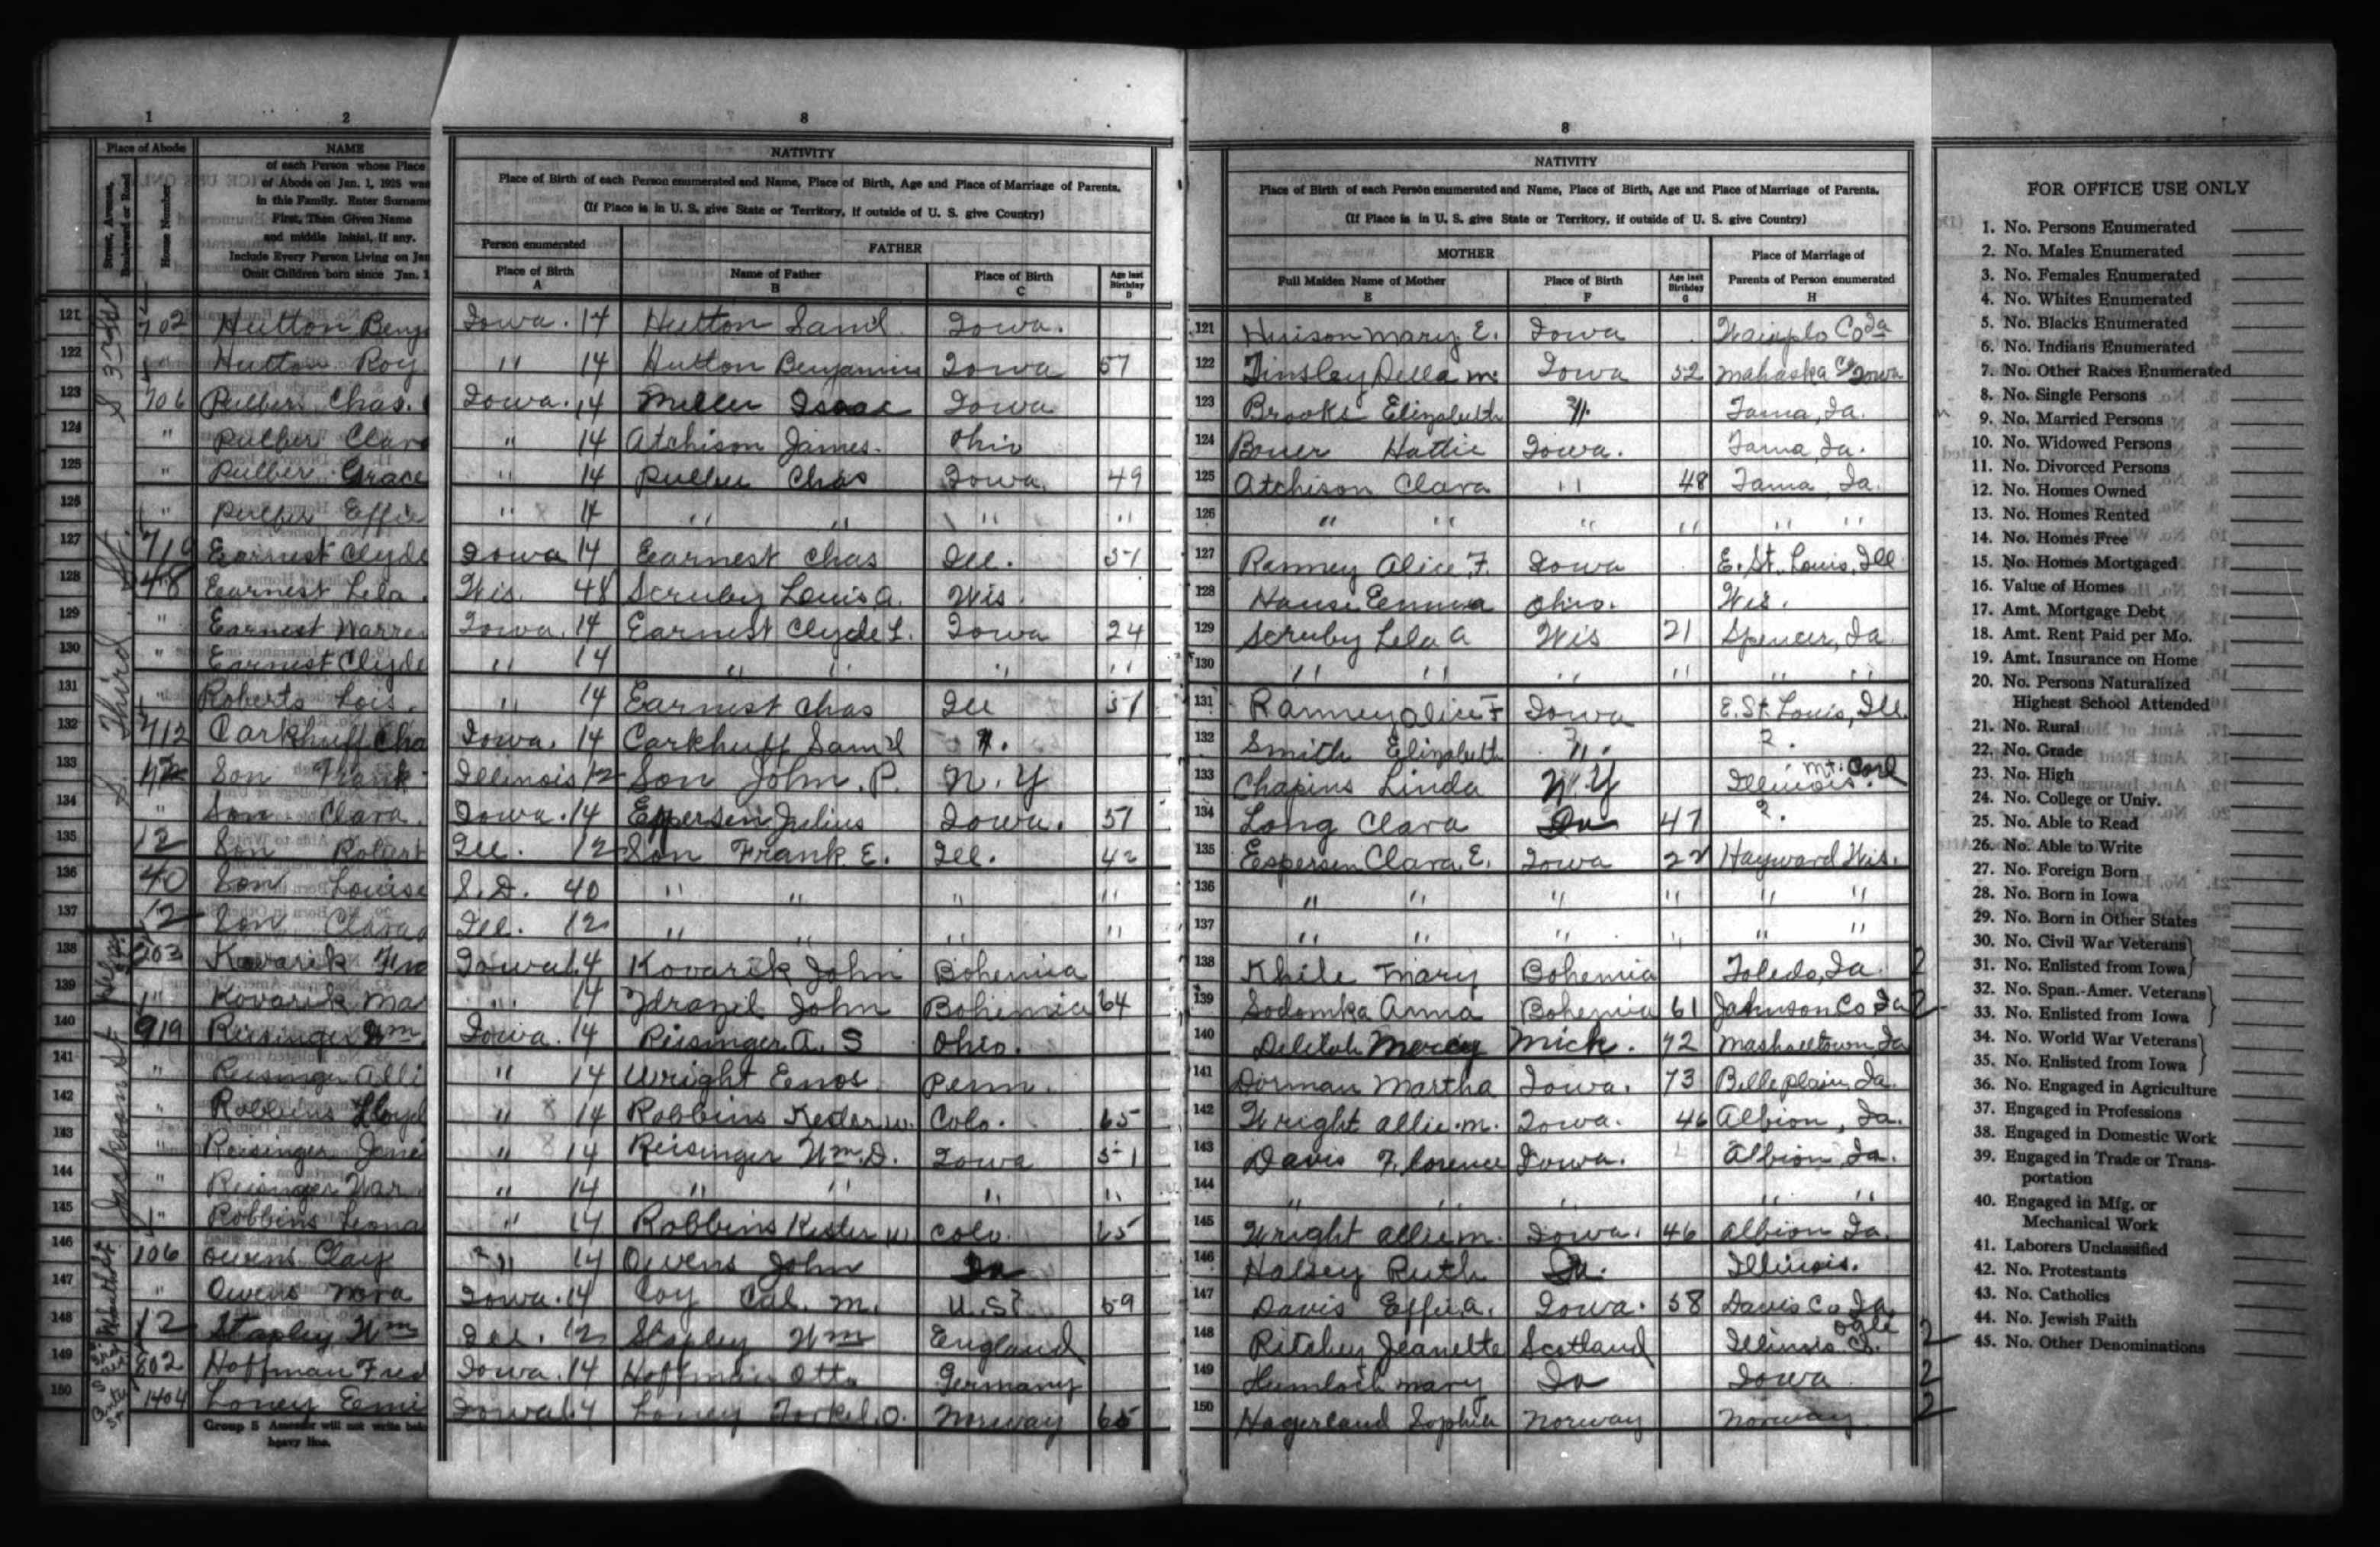 1
2
Place of Abode
NAME
Street, Avenue,
Boulevard or Road
House Number
of each Person whose Place
of Abode on Jan. 1, 1925 was
in this Family. Enter Surname
First, Then Given Name
and middle Initial, if any.
Include Every Person Living on Jan
Omit Children born since Jan. 1
8
NATIVITY
Place of Birth of each Person enumerated and Name, Place of Birth, Age and Place of Marriage of Parents.
(If Place is in U. S. give State or Territory, if outside of U. S. give Country)
Person enumerated
FATHER
Place of Birth
A
Name of Father
B
Place of Birth
C
Age last
Birthday
D
8
NATIVITY
Place of Birth of each Person enumerated and Name, Place of Birth, Age and Place of Marriage of Parents.
(If Place is in U. S. give State or Territory, if outside of U. S. give Country)
MOTHER
Place of Marriage of
Parents of Person enumerated
H
Full Maiden Name of Mother
E
Place of Birth
F
Age last
Birthday
G
121 702 Hutton Benj Iowa. 14 Hutton Saml. Iowa. 121 Mary E. Iowa Co Ia
122 " Hutton Roy " 14 Hutton Benjamin Iowa 57 122 Tinsley Della M. Iowa 52 Mahaska Co Iowa
123 706 Chas. Iowa. 14 Miller Isaac Iowa 123 Brooks Elizabeth ". Tama, Ia.
124 " Clara " 14 Atchison James. Ohio 124 Hattie Iowa. Tama, Ia.
125 " Grace " 14 Chas Iowa 49 125 Atchison Clara " 48 Tama, Ia.
126 " Effie " 14 " " " " 126 " " " " " "
127 710 Earnest Clyde Iowa 14 Earnest Chas Ill. 51 127 Ranney Alice F. Iowa E. St. Louis, Ill
128 48 Earnest Lela. Wis. 48 Scruby Louis A. Wis. 128 Emma Ohio. Wis.
129 " Earnest Warre Iowa. 14 Earnest Clyde L. Iowa 24 129 Scruby Lela A Wis 21 Spencer, Ia
130 " Earnest Clyde " 14 " " " " 130 " " " " " "
131 " Roberts Lois. " 14 Earnest Chas Ill 51 131 Ranney Alice F Iowa E. St. Louis, Ill.
132 712 Carkhuff Cha Iowa. 14 Carkhuff Sam'l ?. 132 Smith Elizabeth ". ?.
133 12 Son Frank Illinois 12 Son John. P. N. Y 133 Chapins Linda N. Y Illinois. Mt. Carl
134 " Son Clara. Iowa. 14 Espersen Julius Iowa. 57 134 Long Clara Ia 47 ?.
135 12 Son Robert Ill. 12 Son Frank E. Ill. 42 135 Espersen Clara E. Iowa 22 Hayward Wis.
136 40 Son Louise S. D. 40 " " " " 136 " " " " " "
137 12 Son Clara Ill. 12 " " " " 137 " " " " "
138 203 Kovarik Iowa 14 Kovarik John Bohemia 138 Mary Bohemia Toledo, Ia. 2
139 " Kovarik Ma " 14 Zdrazil John Bohemia 64 139 Sodomka Anna Bohemia 61 Johnson Co Ia 2
140 919 Reisinger Wm. Iowa. 14 Reisinger A. S Ohio. 140 Mercy Mich. 72 Mashaltown, Ia
141 " Reisinger Alli " 14 Wright Enos Penn. 141 Dorman Martha Iowa. 73 Belle plain, Ia.
142 " Robbins Lloyd " 8 14 Robbins Kester W. Colo. 65 142 Wright Allie. M. Iowa. 46 Albion, Ia.
143 " Reisinger Jane " 8 14 Reisinger Wm. D. Iowa 51 143 Davis Florence Iowa. Albion, Ia.
144 " Reisinger War " 14 " " " " 144 " " " " "
145 " Robbins Leona " 14 Robbins Kester W Colo. 65 145 Wright Allie M. Iowa. 46 Albion Ia.
146 106 Owens Clay " 14 Owens John Ia 146 Halsey Ruth Ia. Illinois.
147 " Owens Nora Iowa. 14 Coy Cal. M. U. S? 59 147 Davis Effie A. Iowa. 58 Davis Co Ia
148 12 Stapley Wm Ill. 12 Stapley Wm England 148 Ritchey Jeanette Scotland Illinois Ogle Co. 2
149 802 Hoffman Fred Iowa. 14 Hoffman Otto Germany 149 Mary Ia Iowa 2
150 1404 Loney Emi Iowa 14 Loney Torkel. O. Norway 65 150 Hagerland Sophia Norway Norway. 2
S. Third St.
Jackson St
Group 5 Assessor will not write bel
heavy line.
FOR OFFICE USE ONLY
1. No. Persons Enumerated
2. No. Males Enumerated
3. No. Females Enumerated
4. No. Whites Enumerated
5. No. Blacks Enumerated
6. No. Indians Enumerated
7. No. Other Races Enumerated
8. No. Single Persons
9. No. Married Persons
10. No. Widowed Persons
11. No. Divorced Persons
12. No. Homes Owned
13. No. Homes Rented
14. No. Homes Free
15. No. Homes Mortgaged
16. Value of Homes
17. Amt. Mortgage Debt
18. Amt. Rent Paid per Mo.
19. Amt. Insurance on Home
20. No. Persons Naturalized
Highest School Attended
21. No. Rural
22. No. Grade
23. No. High
24. No. College or Univ.
25. No. Able to Read
26. No. Able to Write
27. No. Foreign Born
28. No. Born in Iowa
29. No. Born in Other States
30. No. Civil War Veterans
31. No. Enlisted from Iowa
32. No. Span.-Amer. Veterans
33. No. Enlisted from Iowa
34. No. World War Veterans
35. No. Enlisted from Iowa
36. No. Engaged in Agriculture
37. Engaged in Professions
38. Engaged in Domestic Work
39. Engaged in Trade or Trans-
portation
40. Engaged in Mfg. or
Mechanical Work
41. Laborers Unclassified
42. No. Protestants
43. No. Catholics
44. No. Jewish Faith
45. No. Other Denominations